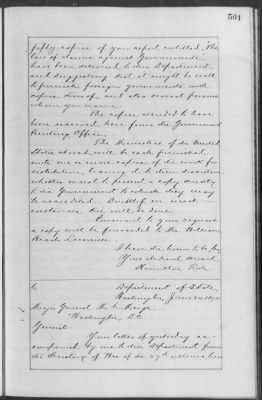 561
fifty copies of your report entitled, "The
law of claims against Governments"
have been received by this Department,
and suggesting that it might be well
to furnish foreign governments with
copies thereof, and also several persons
whom you name.
The copies intended to have
been received here from the Government
Printing Office.
The Ministers of the United
States abroad will be each furnished
with one or more copies of the work for
distribution, leaving it to their discretion
whether or not to present a copy directly
to the Government to which they may
be accredited. Doubtless in most
instances this will be done.
Pursuant to your request
a copy will be forwarded to Mr. William
Beach Lawrence.
I have the honor to be, Sir,
Your obedient servant,
Hamilton Fish
Department of State,
Washington, June
Major General M. C. Meigs,
Washington, D.C.
General:
Your letter of yesterday ac-
companied by one to this Department from
the Secretary of War of the 27th ultimo, has